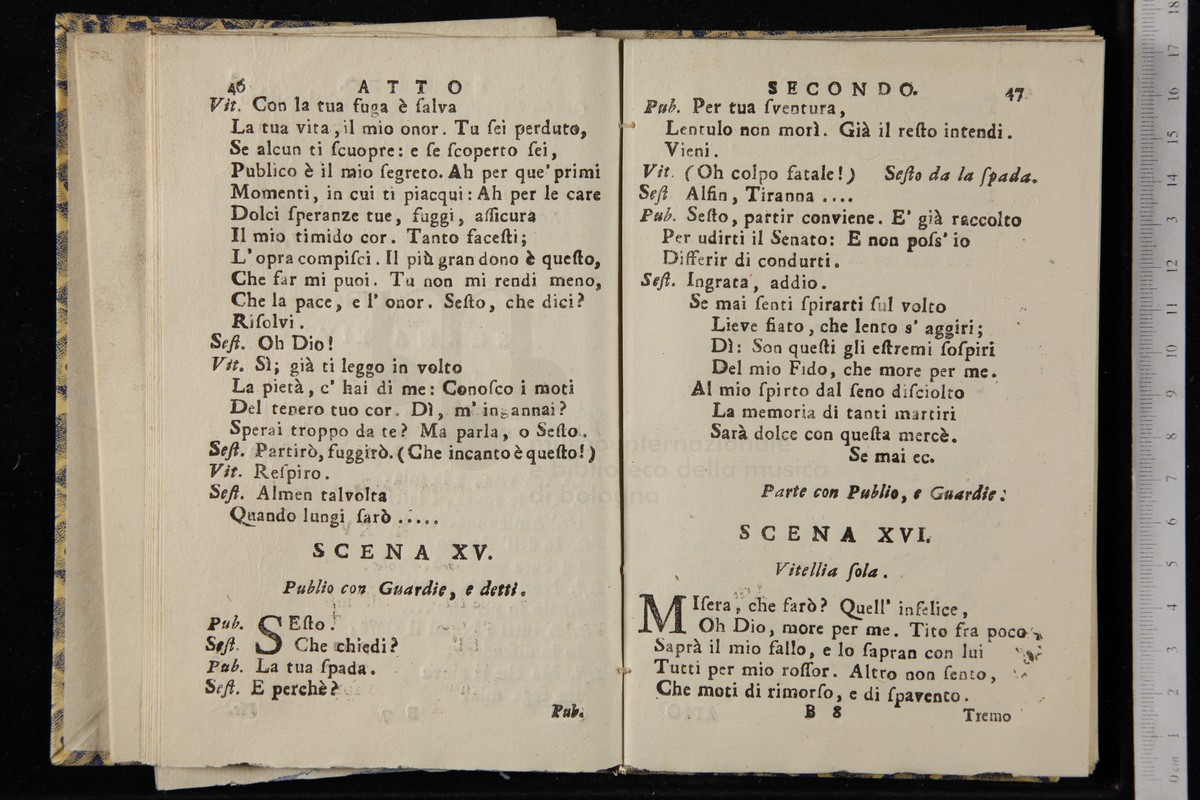 46 ATTO
Vit. Con la tua fuga è ſalva
La tua vita, il mio onor. Tu ſei perduto,
Se alcun ti ſcuopre: e ſe ſcoperto ſei,
Publico è il mio ſegreto. Ah per que' primi
Momenti, in cui ti piacqui: Ah per le care
Dolci ſperanze tue, fuggi, aſſicura
Il mio timido cor. Tanto faceſti;
L' opra compiſci. Il più gran dono è queſto,
Che far mi puoi. Tu non mi rendi meno,
Che la pace, e l' onor. Seſto, che dici?
Riſolvi.
Seſt. Oh Dio!
Vit. Sì; già ti leggo in volto
La pietà, c' hai di me: Conoſco i moti
Del tenero tuo cor. Dì, m' ingannai?
Sperai troppo da te? Ma parla, o Seſto.
Seſt. Partirò, fuggirò. (Che incanto è queſto!)
Vit. Reſpiro.
Seſt. Almen talvolta
Quando lungi ſarò .....
SCENA XV.
Publio con Guardie, e detti.
Pub. SEſto!
Seſt. Che chiedi?
Pub. La tua ſpada.
Seſt. E perchè?
Pub.
SECONDO. 47
Pub. Per tua ſventura,
Lentulo non morì. Già il reſto intendi.
Vieni.
Vit. (Oh colpo fatale!) Seſto da la ſpada.
Seſt Alfin, Tiranna ....
Pub. Seſto, partir conviene. E' già raccolto
Per udirti il Senato: E non poſs' io
Differir di condurti.
Seſt. Ingrata, addio.
Se mai ſenti ſpirarti ſul volto
Lieve fiato, che lento s' aggiri;
Dì: Son queſti gli eſtremi ſoſpiri
Del mio Fido, che more per me.
Al mio ſpirto dal ſeno diſciolto
La memoria di tanti martiri
Sarà dolce con queſta mercè.
Se mai ec.
museo internazionale
e biblioteca della musica
di bologna
Parte con Publio, e Guardie.
SCENA XVI.
Vitellia ſola.
MIſera, che farò? Quell' infelice,
Oh Dio, more per me. Tito fra poco
Saprà il mio fallo, e lo ſapran con lui
Tutti per mio roſſor. Altro non ſento,
Che moti di rimorſo, e di ſpavento.
B 8 Tremo
0 cm 1 2 3 4 5 6 7 8 9 10 11 12 13 14 15 16 17 18